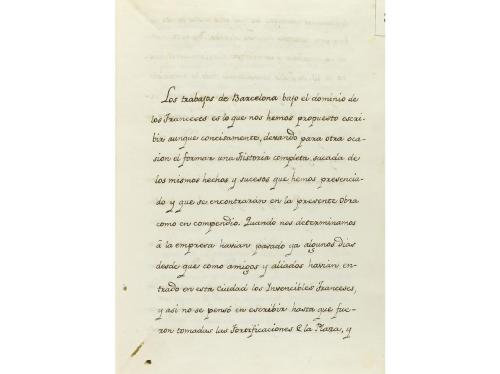 Los trabajos de Barcelona bajo el dominio de
los Franceses es lo que nos hemos propuesto escri-
bir aunque concisamente, dexando para otra oca-
sion el formar una Historia completa, sacada de
los mismos hechos y sucesos que hemos presencia-
do y que se encontraran en la presente Obra
como en compendio. Quando nos determinamos
à la empresa havian pasado ya algunos dias
desde que como amigos y aliados havian en-
trado en esta ciudad los Invencibles Franceses,
y asi no se pensó en escribir hasta que fue-
ron tomadas las Fortificaciones & la Plaza, y